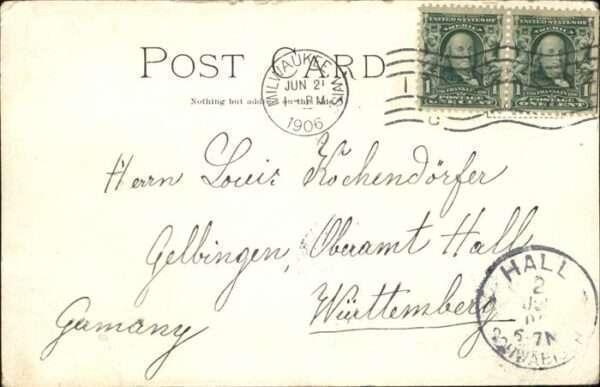 POST CARD
Nothing but address on this side.
MILWAUKEE, WIS.
JUN 21
PM
1906
UNITED STATES OF AMERICA
1 FRANKLIN 1
POSTAGE
ONE CENT
UNITED STATES OF AMERICA
1 FRANKLIN 1
POSTAGE
ONE CENT
Herrn Louis Kochendörfer
Gelbingen, Oberamt Hall
Württemberg
Germany
HALL
2
6-7N